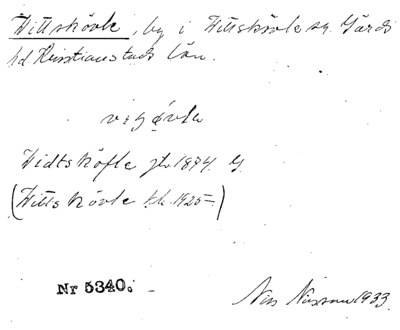 Vittskövle, by i Vittskövle sn. Gärds
hd. Kristianstads län.
Widtsköfle jb. 1874. G
(Vittskövle kk. 1925–)
Nr 5340.
Nils 1933.